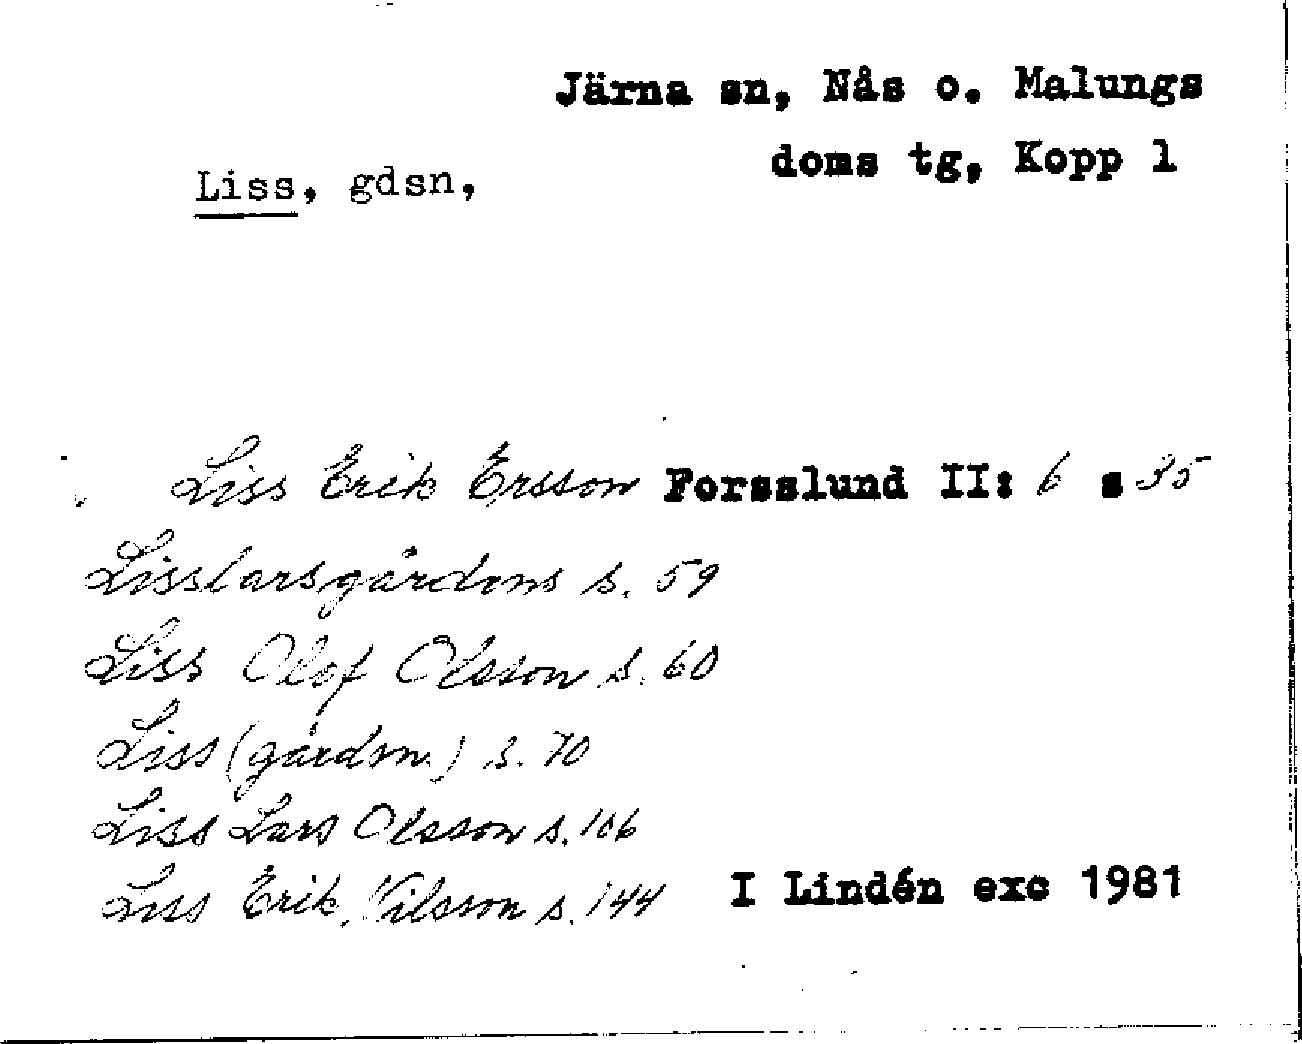 Järna sn, Nås o. Malungs
doms tg, Kopp l
Liss, gdsn,
Liss Erik Ersson Forsslund II: 6 s 35
Lisslarsgårdens s. 59
Liss Olof Olsson s. 60
Liss (gårdsn.) s. 70
Liss Lars Olsson s. 106
Liss Erik Nilsson s. 144
I Lindén exc 1981